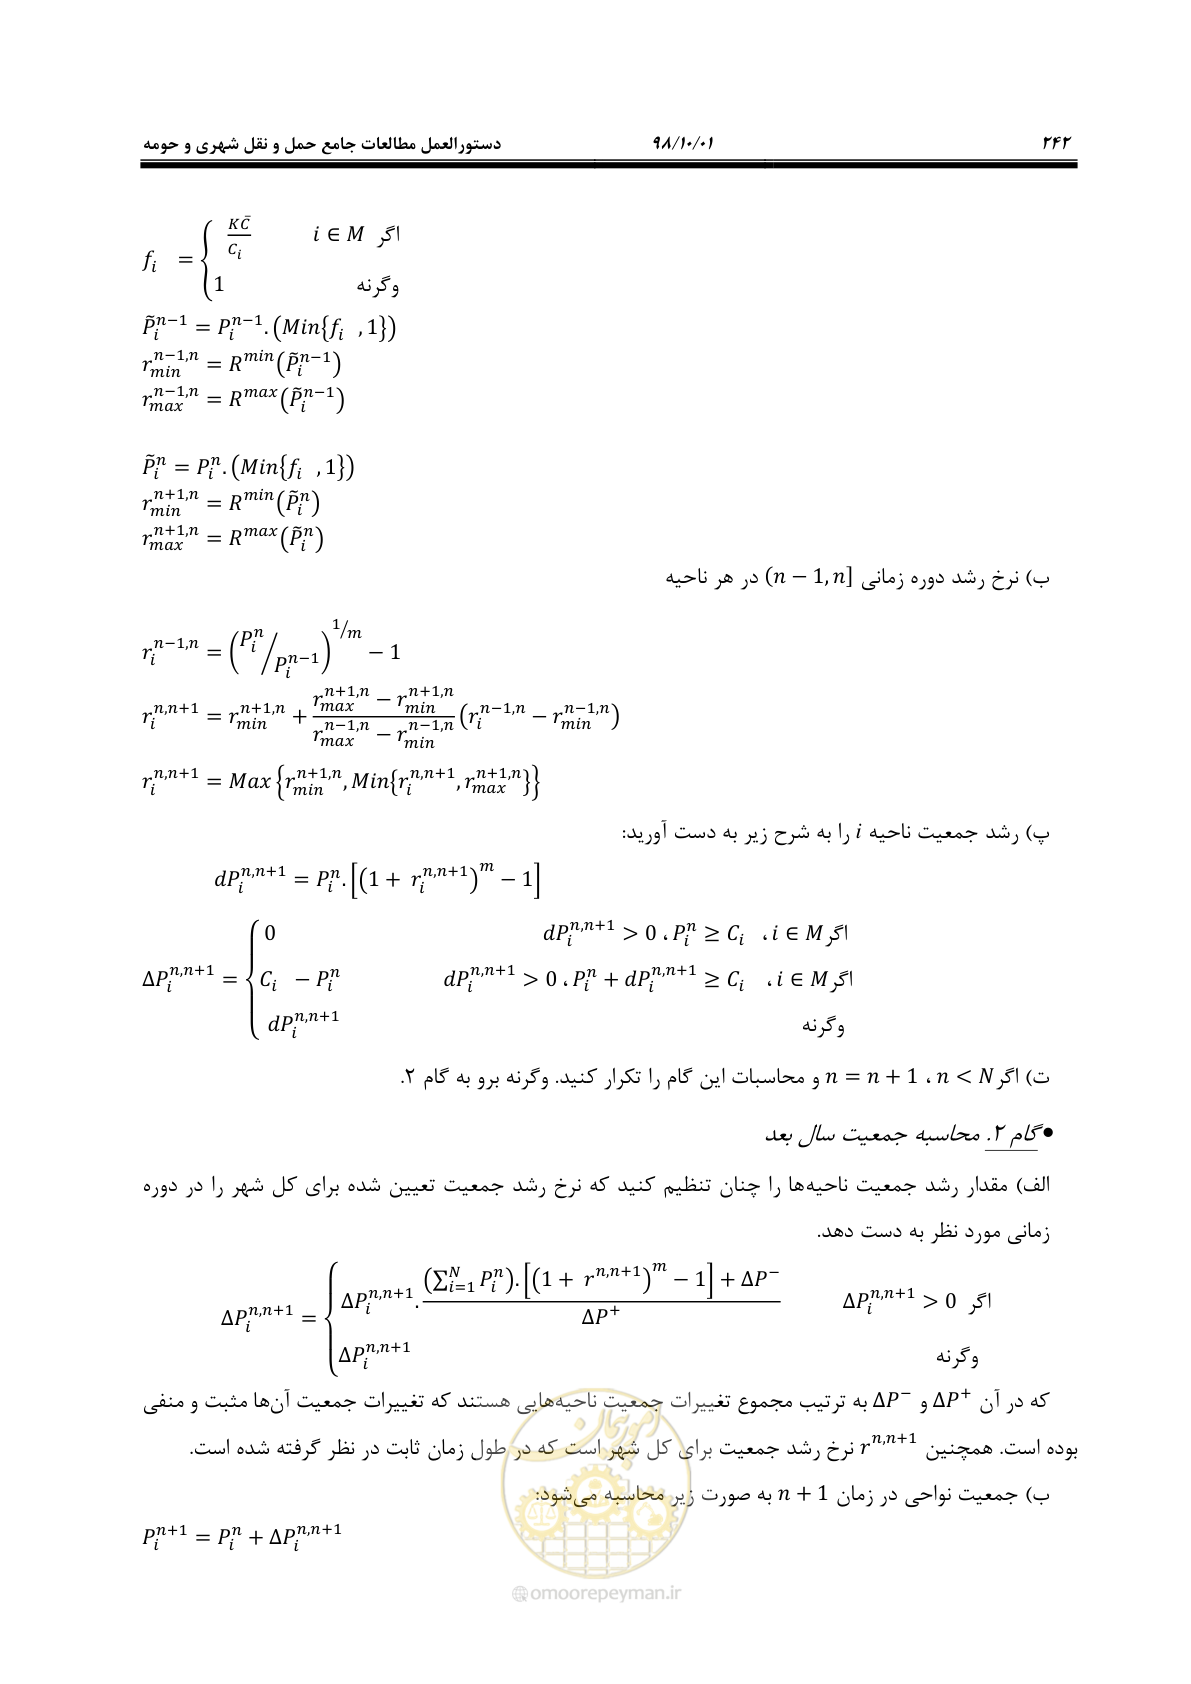 ۲۴۲ ۹۸/۱۰/۰۱ دستورالعمل مطالعات جامع حمل و نقل شهری و حومه
f_i = { K\bar{C} / C_i اگر i ∈ M
1 وگرنه
\tilde{P}_i^{n−1} = P_i^{n−1}.(Min{f_i , 1})
r_{min}^{n−1,n} = R^{min}(\tilde{P}_i^{n−1})
r_{max}^{n−1,n} = R^{max}(\tilde{P}_i^{n−1})
\tilde{P}_i^n = P_i^n.(Min{f_i , 1})
r_{min}^{n+1,n} = R^{min}(\tilde{P}_i^n)
r_{max}^{n+1,n} = R^{max}(\tilde{P}_i^n)
ب) نرخ رشد دوره زمانی (n − 1, n] در هر ناحیه
r_i^{n−1,n} = (P_i^n / P_i^{n−1})^{1/m} − 1
r_i^{n,n+1} = r_{min}^{n+1,n} + (r_{max}^{n+1,n} − r_{min}^{n+1,n}) / (r_{max}^{n−1,n} − r_{min}^{n−1,n}) (r_i^{n−1,n} − r_{min}^{n−1,n})
r_i^{n,n+1} = Max{r_{min}^{n+1,n}, Min{r_i^{n,n+1}, r_{max}^{n+1,n}}}
پ) رشد جمعیت ناحیه i را به شرح زیر به دست آورید:
dP_i^{n,n+1} = P_i^n.[(1 + r_i^{n,n+1})^m − 1]
ΔP_i^{n,n+1} = { 0 اگر i ∈ M ، P_i^n ≥ C_i ، dP_i^{n,n+1} > 0
C_i − P_i^n اگر i ∈ M ، P_i^n + dP_i^{n,n+1} ≥ C_i ، dP_i^{n,n+1} > 0
dP_i^{n,n+1} وگرنه
ت) اگر n < N ، n = n + 1 و محاسبات این گام را تکرار کنید. وگرنه برو به گام ۲.
•گام ۲. محاسبه جمعیت سال بعد
الف) مقدار رشد جمعیت ناحیه‌ها را چنان تنظیم کنید که نرخ رشد جمعیت تعیین شده برای کل شهر را در دوره
زمانی مورد نظر به دست دهد.
ΔP_i^{n,n+1} = { ΔP_i^{n,n+1}. ((∑_{i=1}^N P_i^n).[(1 + r^{n,n+1})^m − 1] + ΔP^−) / ΔP^+ اگر ΔP_i^{n,n+1} > 0
ΔP_i^{n,n+1} وگرنه
که در آن ΔP^+ و ΔP^− به ترتیب مجموع تغییرات جمعیت ناحیه‌هایی هستند که تغییرات جمعیت آن‌ها مثبت و منفی
بوده است. همچنین r^{n,n+1} نرخ رشد جمعیت برای کل شهر است که در طول زمان ثابت در نظر گرفته شده است.
ب) جمعیت نواحی در زمان n + 1 به صورت زیر محاسبه می‌شود:
P_i^{n+1} = P_i^n + ΔP_i^{n,n+1}
امور پیمان
@omoorepeyman.ir